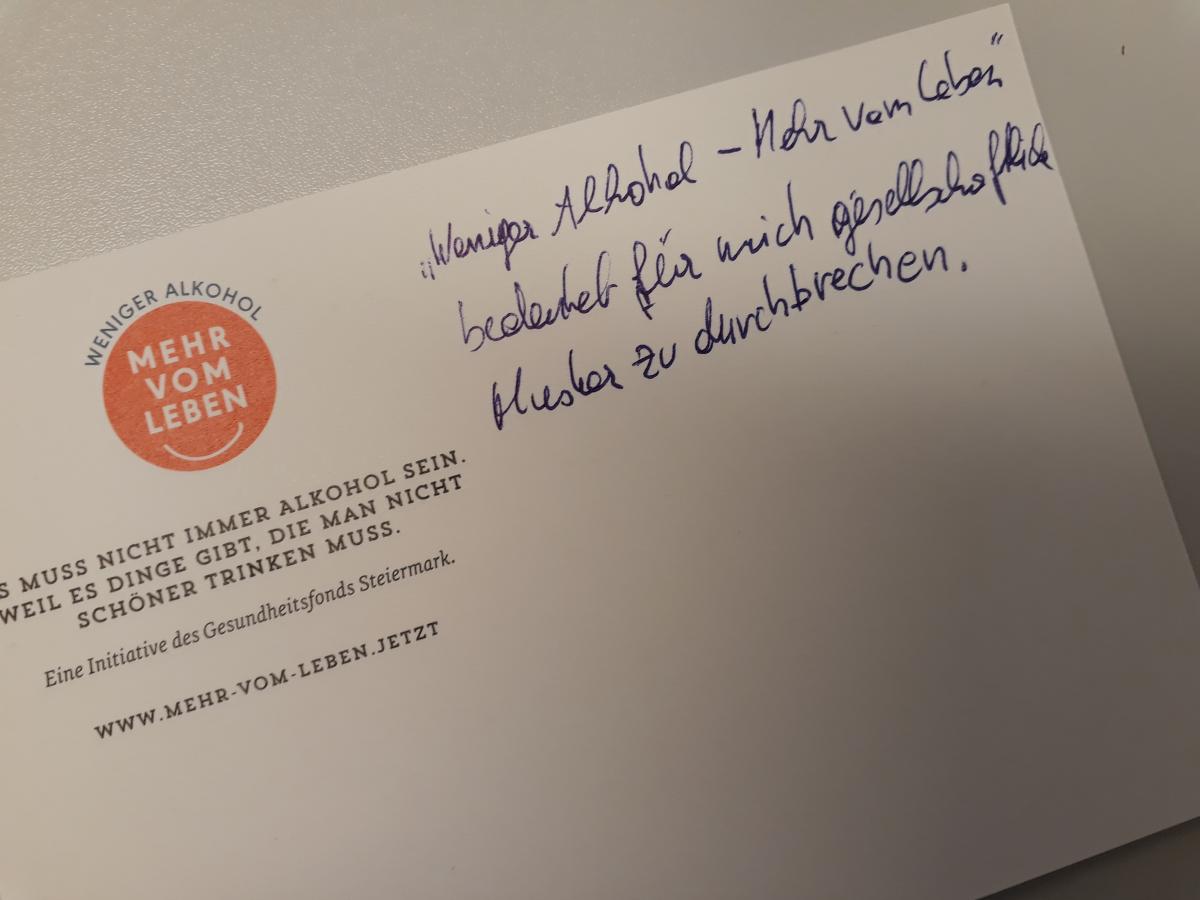 „Weniger Alkohol – Mehr vom Leben“
bedeutet für mich gesellschaftliche
Muster zu durchbrechen.
WENIGER ALKOHOL
MEHR
VOM
LEBEN
S MUSS NICHT IMMER ALKOHOL SEIN.
WEIL ES DINGE GIBT, DIE MAN NICHT
SCHÖNER TRINKEN MUSS.
Eine Initiative des Gesundheitsfonds Steiermark.
WWW.MEHR-VOM-LEBEN.JETZT